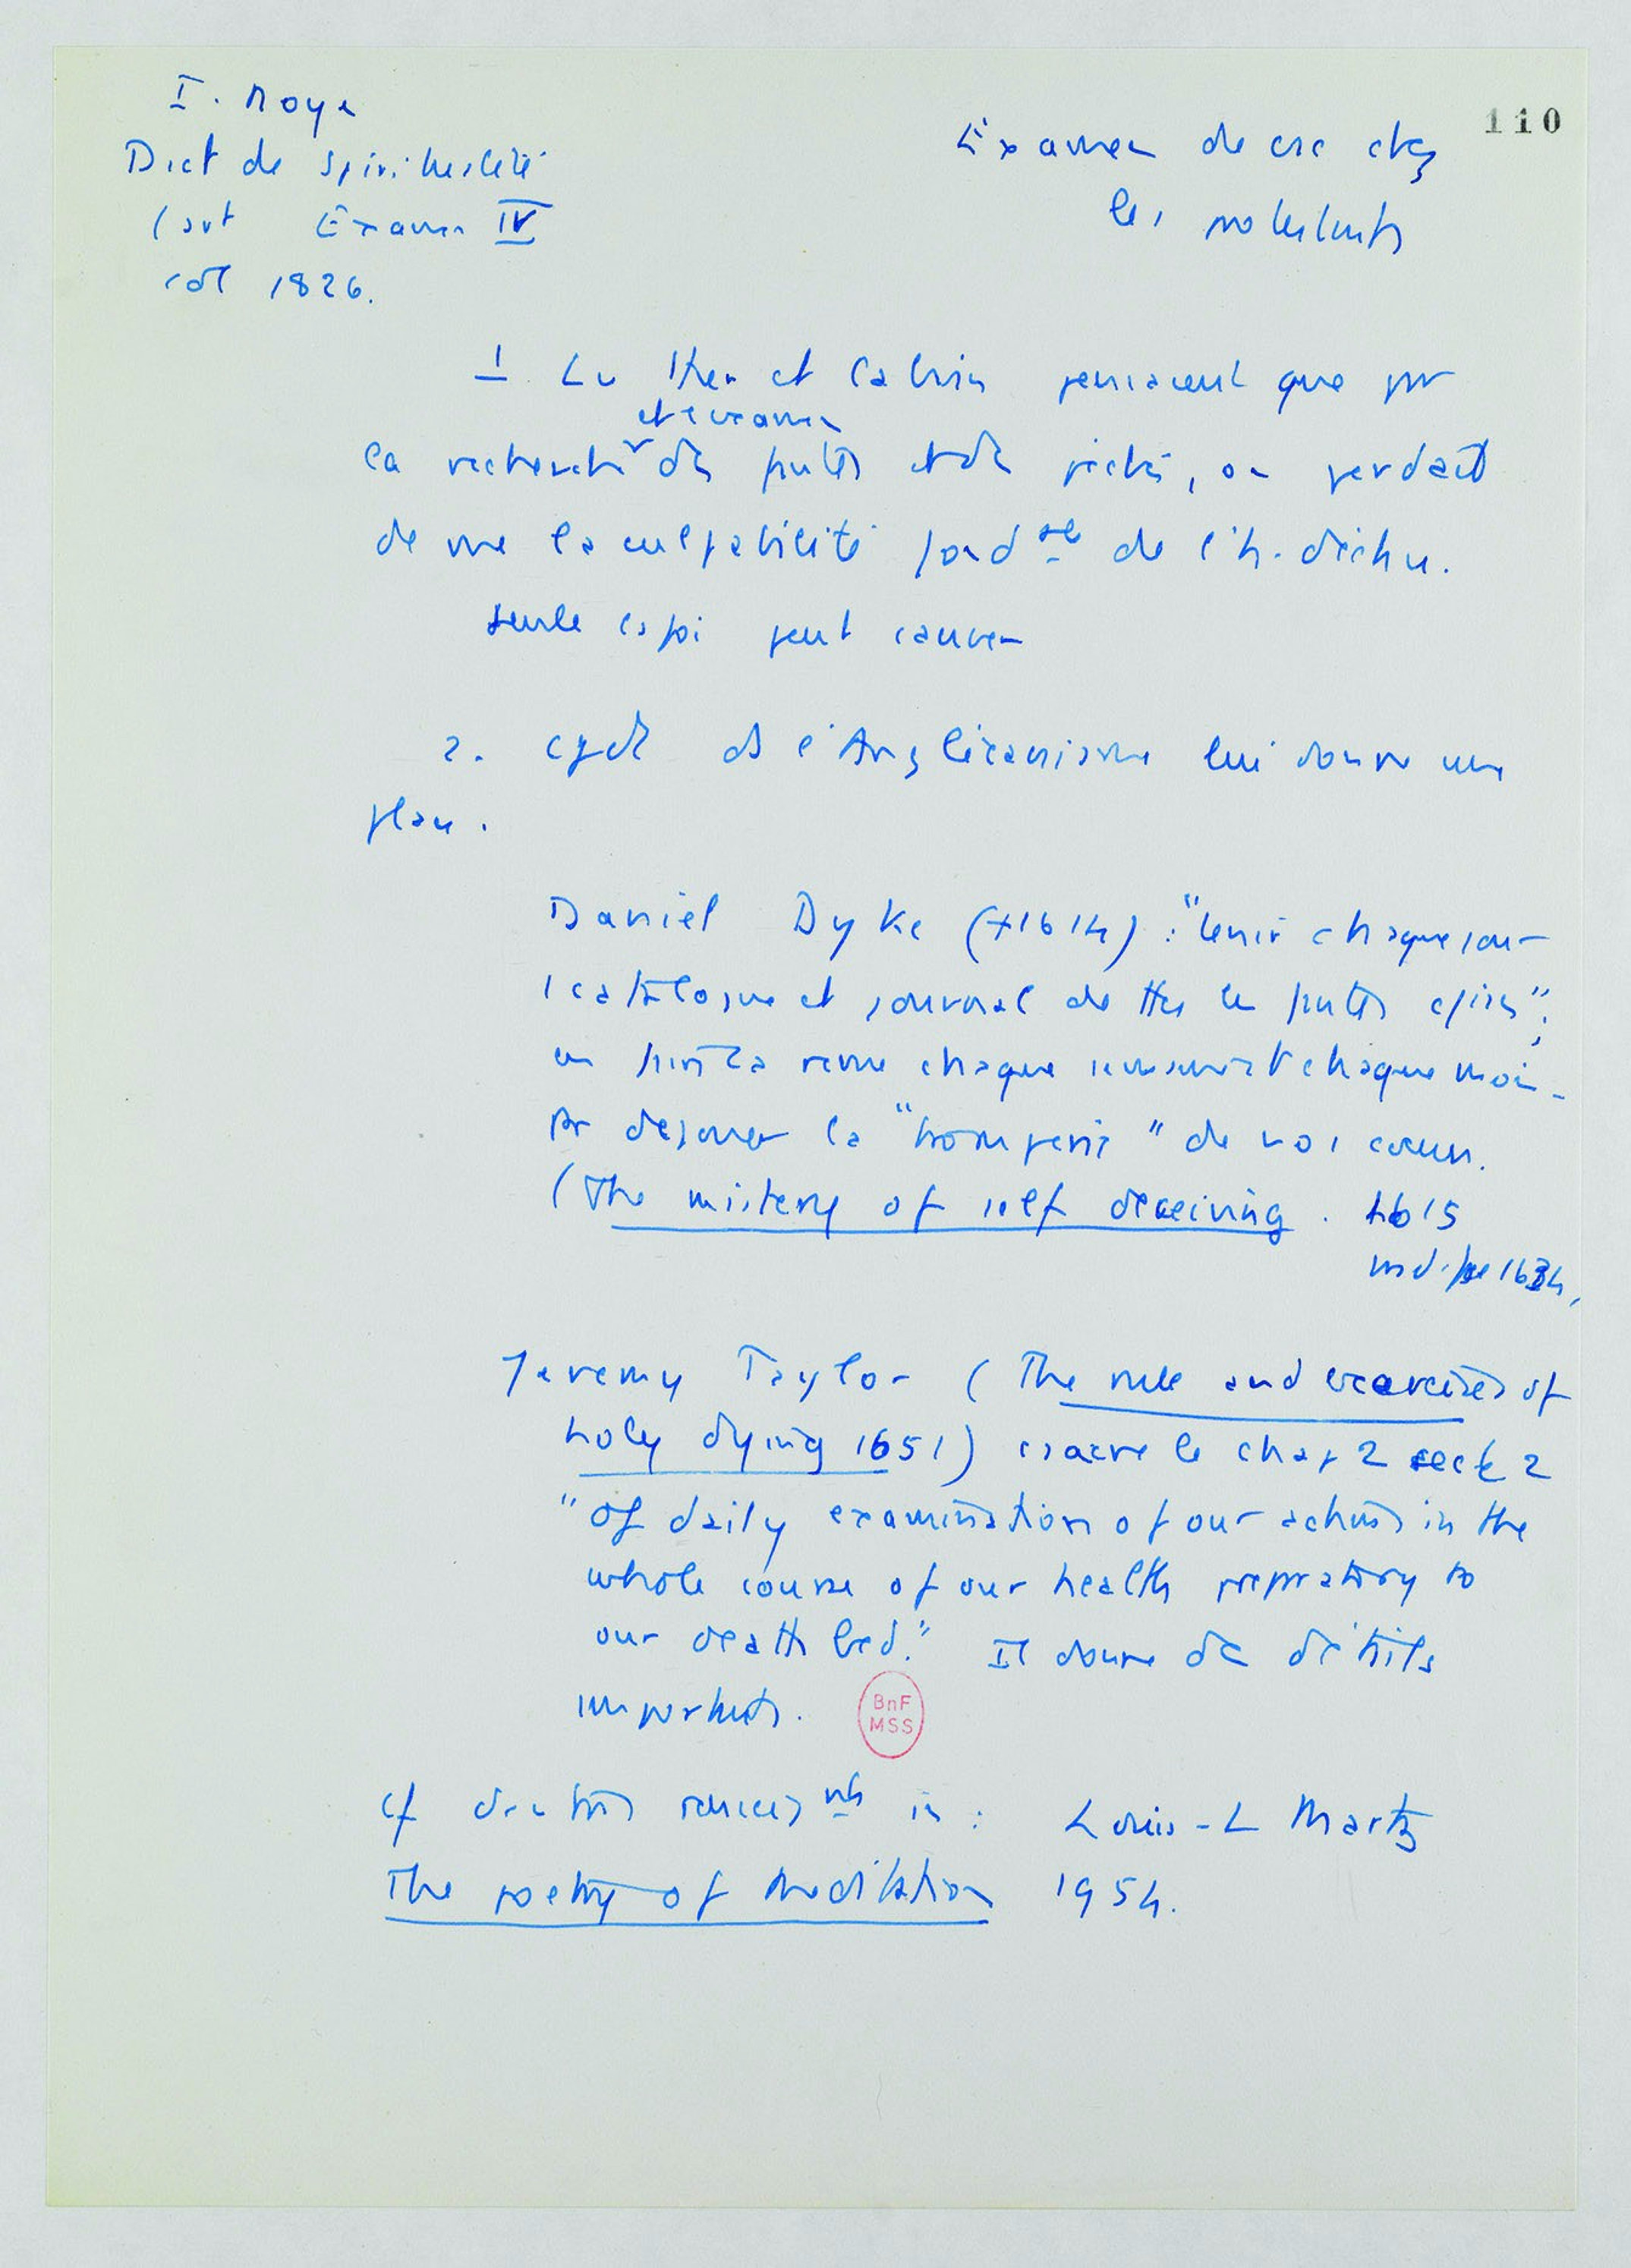 I. Noye
Dict de Spiritualité
(art Examen IV
col 1826.
Examen de csc chez
les protestants
110
1 Luther et Calvin pensaient que par
et examen
la recherche des fautes et des péchés, on perdait
de vue la culpabilité fondale de l'h. déchu.
seule la foi peut sauver
2. cpdt ds l'Anglicanisme lui donne une
place.
Daniel Dyke (+1614) : "tenir chaque jour
1 catalogue et journal de ttes les fautes
la revue chaque et chaque mois
pr déjouer la "tromperie" de nos cœurs.
(The mistery of self deceiving. 1615
1634,
Jeremy Taylor (The rule and exercises of
holy dying 1651) consacre le chap 2 sect 2
"Of daily examination of our actions in the
whole course of our health preparatory to
our death bed." Il donne des détails
importants.
BnF
MSS
cf d'autres rensgnts in : Louis-L Martz
The poetry of meditation 1954.